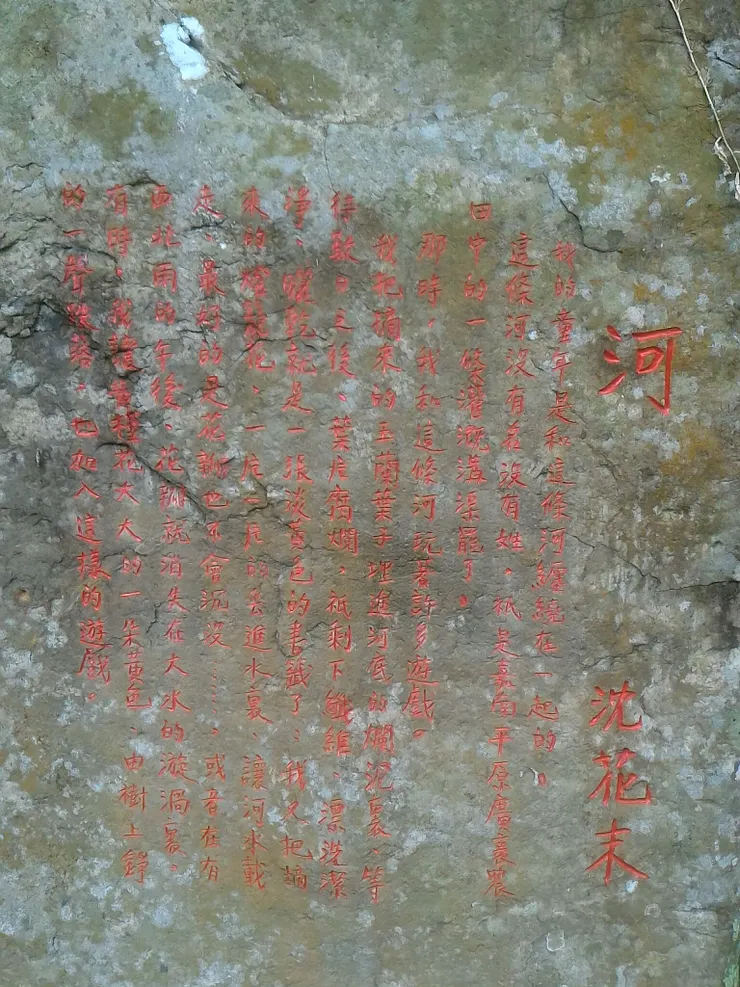 河
沈花末
我的童年是和這條河纏繞在一起的。
這條河沒有名沒有姓,祇是嘉南平原廣袤農
田中的一條灌溉溝渠罷了。
那時,我和這條河玩著許多遊戲。
我把摘來的玉蘭葉子埋進河底的爛泥裏、等
待數日之後、葉片腐爛,祇剩下纖維、漂洗潔
淨、曬乾就是一張淡黃色的書籤了;我又把摘
來的燈籠花、一片一片的丟進水裏、讓河水載
走、最好的是花瓣也不會沉沒……。或者在有
西北雨的午後、花瓣就消失在大水的漩渦裏。
有時,我讓黃槿花大大的一朵黃色、由樹上
的一聲,也加入這樣的遊戲。